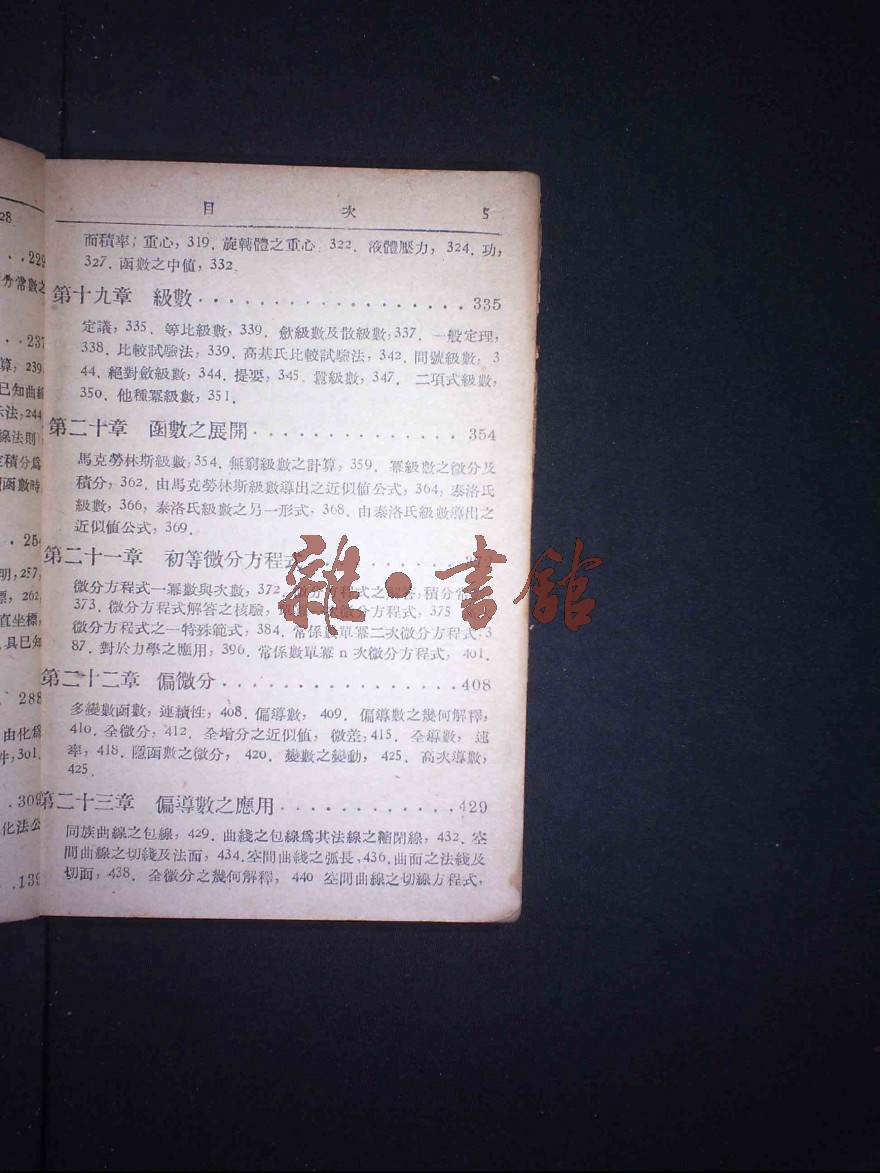 28
. . 229
分常數之
. . 237
算，239
已知曲線
示法，244
線法則
定積分爲
函數時
. 254
明，257，
標，262，
直坐標，
具已知
288
由化爲
件，301
.309
化法公
.139
目 次 5
面積率；重心，319．旋轉體之重心 322．液體壓力，324．功，
327．函數之中值，332．
第十九章 級數 . . . . . . . . . . . . . . . . . . . 335
定議，335．等比級數，339．斂級數及散級數，337．一般定理，
338．比較試驗法，339．高基氏比較試驗法，342．間號級數，3
44．絕對斂級數，344．提要，345．羃級數，347．二項式級數，
350．他種羃級數，351．
第二十章 函數之展開 . . . . . . . . . . . . . . 354
馬克勞林斯級數，354．無窮級數之計算，359．冪級數之微分及
積分，362．由馬克勞林斯級數導出之近似值公式，364，泰洛氏
級數，366，泰洛氏級數之另一形式，368．由泰洛氏級數導出之
近似值公式，369．
第二十一章 初等微分方程式 . . . . . . . 372
微分方程式—冪數與次數，372．微分方程式之解答，積分常
373．微分方程式解答之核驗， 次微分方程式，375
微分方程式之一特殊範式，384．常係數單冪二次微分方程式，3
87．對於力學之應用，396．常係數單冪 n 次微分方程式，401．
第二十二章 偏微分 . . . . . . . . . . . . . . . .408
多變數函數，連續性，408．偏導數，409．偏導數之幾何解釋，
410．全微分，412．全增分之近似值，微差，415．全導數，速
率，418．隱函數之微分，420．變數之變動，425．高次導數，
425．
第二十三章 偏導數之應用 . . . . . . . . . . . .429
同族曲線之包線，429．曲綫之包線爲其法線之縮閉線，432．空
間曲線之切綫及法面，434．空間曲綫之弧長，436．曲面之法綫及
切面，438．全微分之幾何解釋，440 空間曲線之切線方程式，
雜・書舘